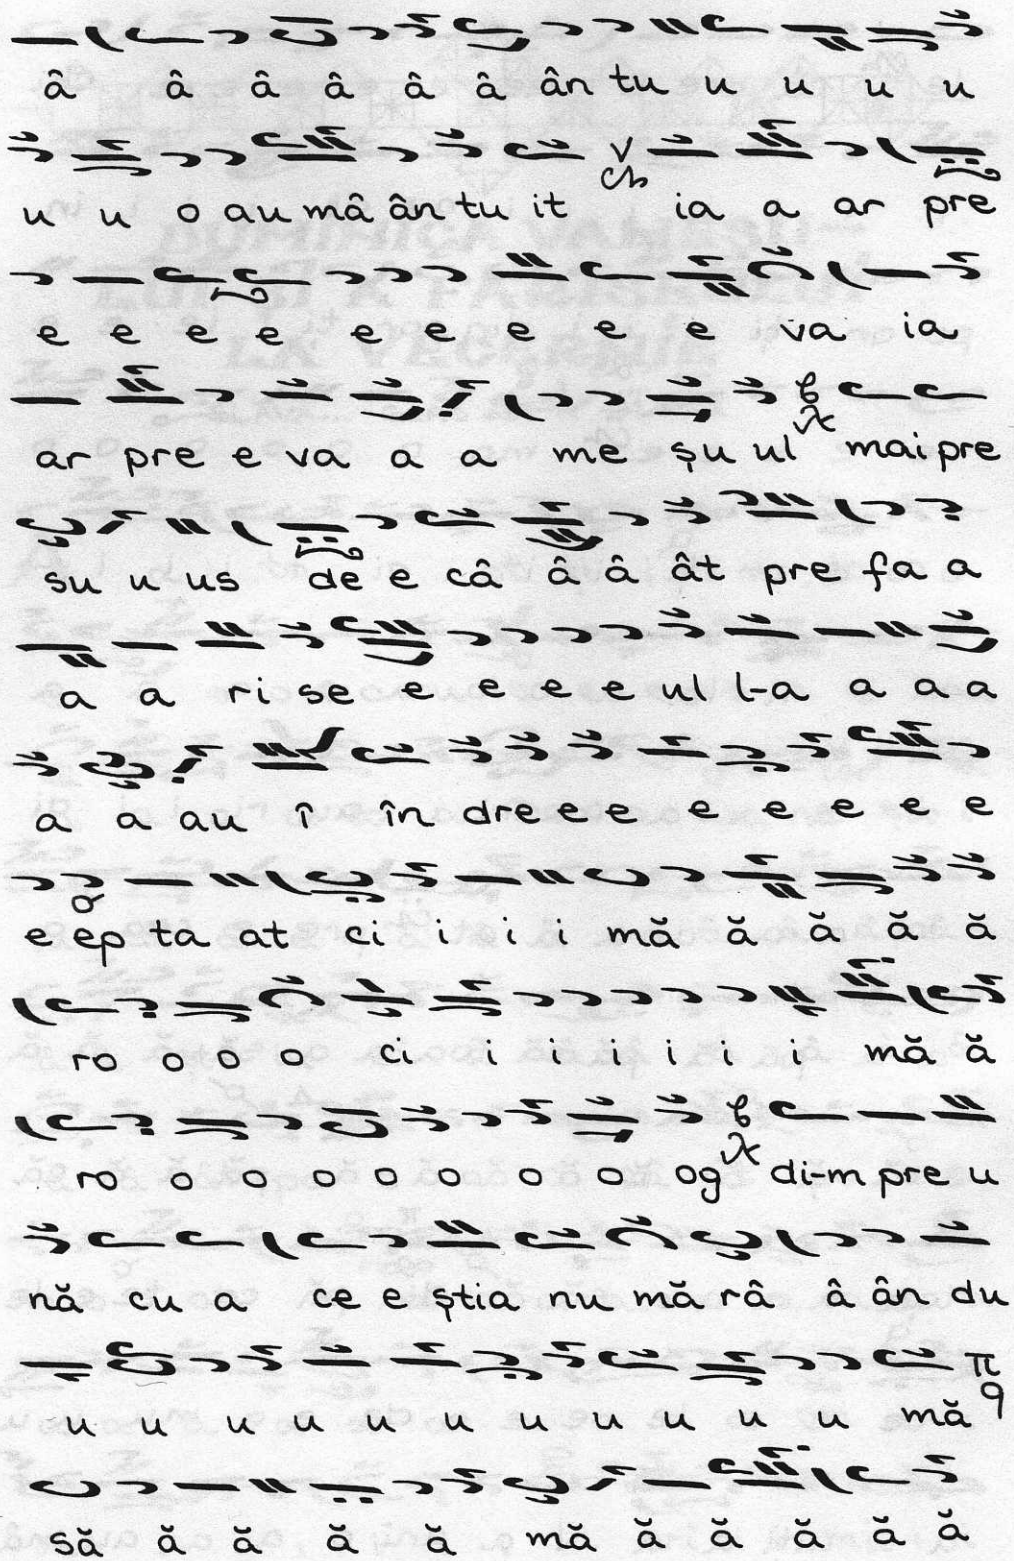 â â â â â â ân tu u u u u
u u o au mâ ân tu it ia a ar pre
e e e e e e e e e va ia
ar pre e va a a me șu ul mai pre
su u us de e câ â â ât pre fa a
a a ri se e e e e ul l-a a a a
a a au î în dre e e e e e e e
e ep ta at ci i i i mă ă ă ă ă
ro o o o ci i i i i i i mă ă
ro o o o o o o o og di-m pre u
nă cu a ce e știa nu mă râ â ân du
u u u u u u u u u u u mă
să ă ă ă ă mă ă ă ă ă ă